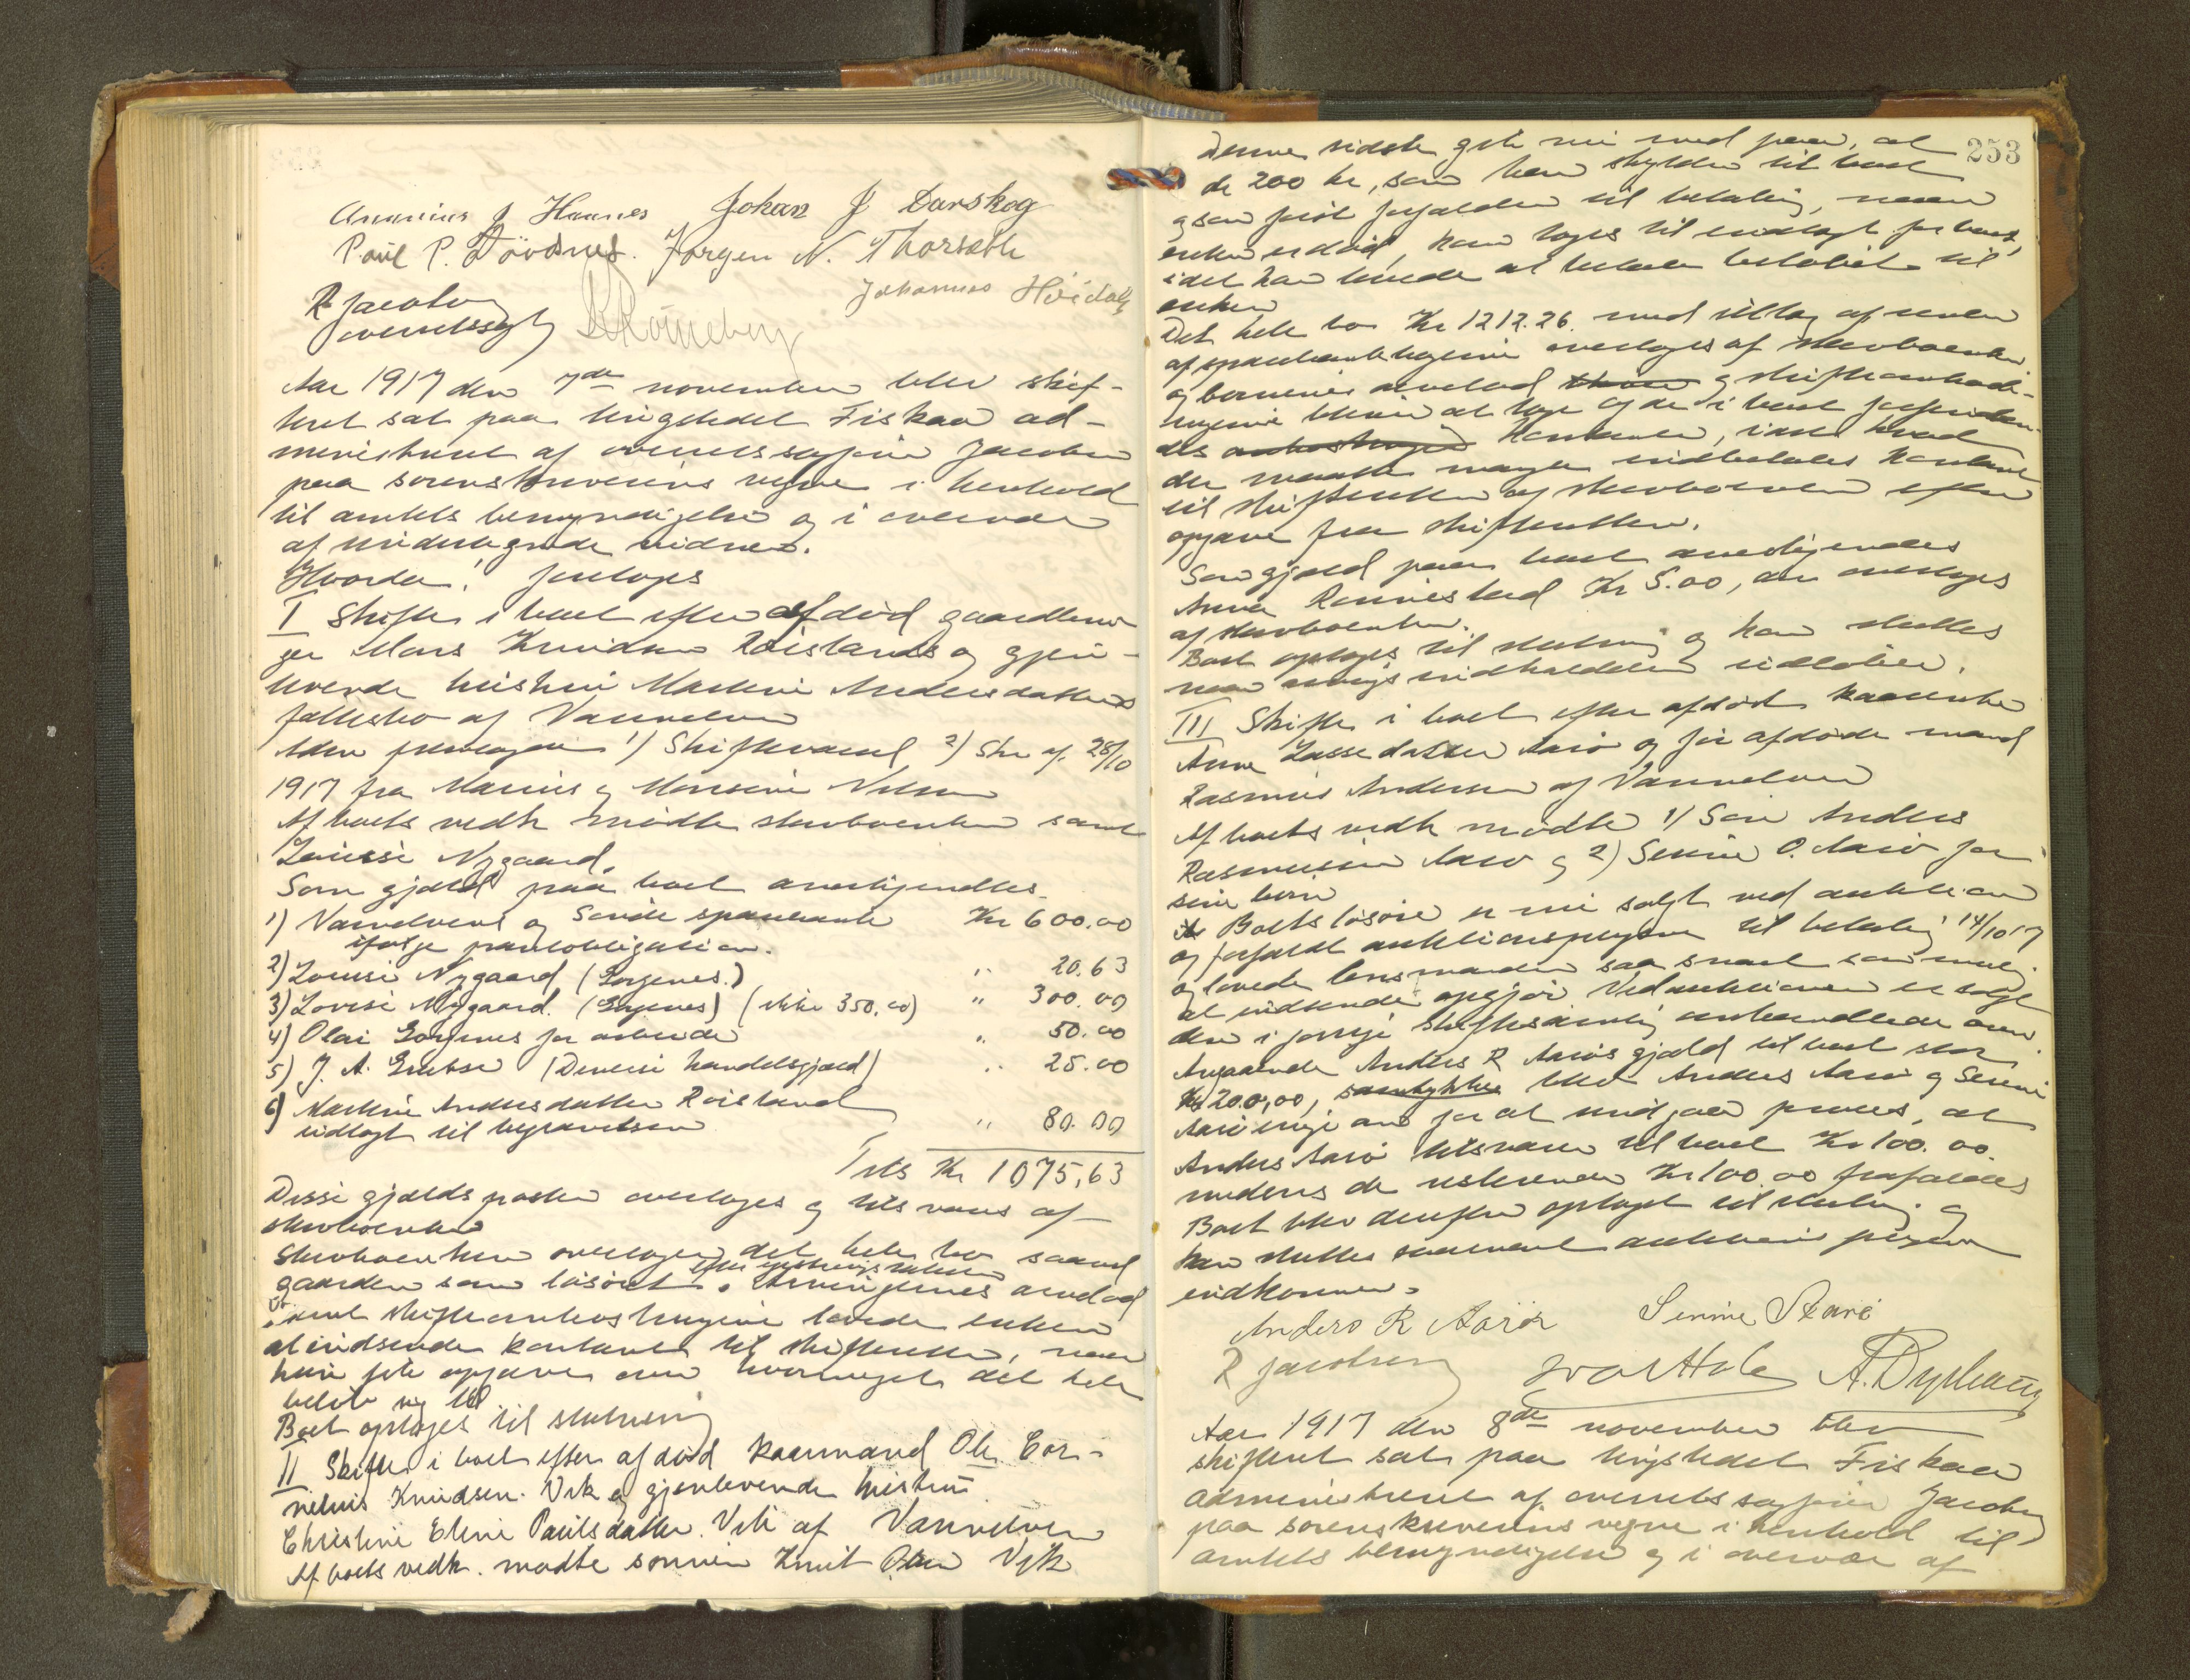 Ananias J Haanes Johan J Darskog
Paul P. Dövdnes. Jørgen N. Thorseth
R Jacobsen Johannes Høidal
overretssagf
Aar 1917 den 7de november blev skif-
teret sat paa tingstedet Fiskaa ad-
ministreret af overretssagfører Jacobsen
paa sorenskriverens vegne i henhold
til amtets bemyndigelse og i overvær
af undertegnede vidner.
Hvorda! foretoges
I Skifte i boet efter afdød gaardbru-
ger Mons Knudsen Røislands og gjen-
levende hustru Martine Andersdatters
fællesbo af Vanvelven
Blev fremlagt 1) Skiftevarsel 2) Skr af 28/10
1917 fra Marius og Monsine Nilsen
Af boets vedk mødte skerboenken samt
Lovise Nygaard.
Som gjæld paa boet anerkjendtes
1) Vanelvens og Sande sparebank Kr 600.00
ifølge pantobligation.
2) Lovise Nygaard (Gorgenes.) " 20.63
3) Lovise Nygaard. (Gorgenes) (ikke 350,00) " 300.00
4) Olai Gorgenes for arbeide " 50.00
5) J. A. Grebse (Diverse handelsgjæld) " 25.00
6) Martine Andersdatter Røisland
utlagt til begravelsen " 80.00
Tils Kr 1075,63
Disse gjældsposter overtoges og tilsvares af
skerboenken
Skerboenken overtager det hele bo saavel
gaarden som løsøret. efter Arvingernes arvelod
samt skifteomkostningerne lovede enken
at indsende kontant til skifteretten, naar
hun fik opgave over hvormeget det hele
beløb sig til
Boet optoges til slutning
II Skifte i boet efter afdød kaarmand Ole Cor-
nelius Knudsen Vik og gjenlevende hustru
Christine Eline Paulsdatter Vik af Vanelven
Af boets vedk. mødte sønnen Knut Olsen Vik
253
Denne sidste gik nu med paa, at
de 200 kr, som han skylder til boet
og som først forfalder til betaling, naar
enken er død, kan tages til indtægt for boet,
idet han lovede at betale beløbet til
enken
Det hele bo Kr 1212.26. med tillæg af renter
af sparebankbøgerne overtoges af skerboenken
og børnenes arvelod og skifteomkost-
ningerne bliver at tage af de i boet forefinden-
des kontanter, imens hvad
der maatte mangle indbetales kontant
til skifteretten af skerboenken efter
opgave fra skifteretten.
Som gjæld paa boet anerkjendtes
Anna Rønnestad Kr 5.00, der overtoges
af skerboenken.
Boet optoges til slutning og kan sluttes
naar indkaldelsen utløber.
III Skifte i boet efter afdød kaarenke
Anne Lassedatter Aarø og før afdøde mand
Rasmus Andersen af Vanelven
Af boets vedk mødte 1) Søn Anders
Rasmussen Aarø og 2) Serine O. Aarø for
sine børn
Boets løsøre er nu solgt ved auktion
og forfaldt auktionspengene til betaling 14/10 17
og lovede lensmanden saa snart som mulig
at indsende opgjør. Ved auktionen er solgt
den i forrige skiftesamling omhandlede
Angaaende Anders R Aarøs gjæld til boet stor
Kr 200,00, blev Anders Aarø og Serine
Aarø enige om for at undgaa proces, at
Anders Aarø tilsvarer til boet Kr 100.00.
medens de resterende Kr 100.00 frafaldes
Boet blev derefter optaget til slutning og
kan sluttes saasnart auktions pengene
indkommer.
Anders R Aarø Serine Aarø
R Jacobsen Ivar Hole
Aar 1917 den 8de november blev
skifteret sat paa tingstedet Fiskaa
administreret af overretssagfører Jacobsen
paa sorenskriverens vegne i henhold til
amtets bemyndigelse og i overvær af